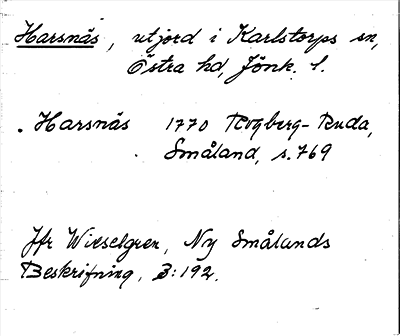 Harsnäs, utjord i Karlstorps sn,
Östra hd, Jönk. l.
Harsnäs 1770 Rogberg-Ruda,
Småland, s. 769
Jfr Wieselgren, Ny Smålands
Beskrifning, 3:192.